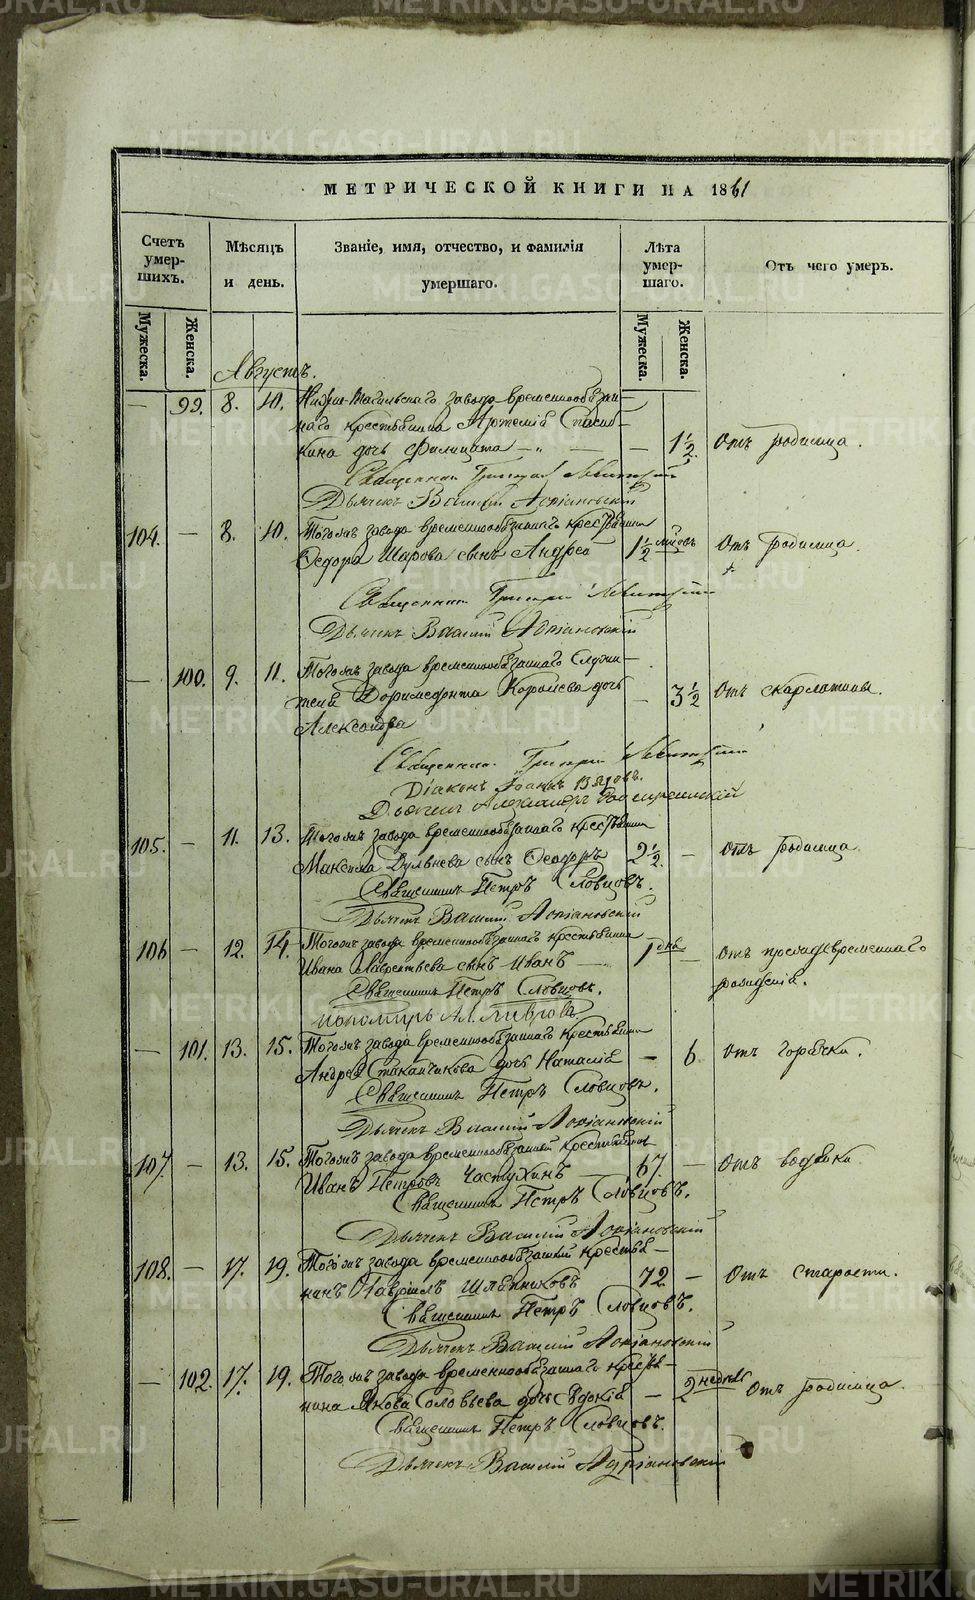 МЕТРИЧЕСКОЙ КНИГИ НА 1861
Счетъ умершихъ.
Мѣсяцъ и день.
Званіе, имя, отчество, и фамилія умершаго.
Лѣта умершаго.
Отъ чего умеръ.
Мужеска. Женска. Мужеска. Женска.
Августъ.
— 99. 8. 10. Нижне-Тагильскаго завода временнообязан-
наго крестьянина Артемія
кина дочь Фелицата — 1 1/2. Отъ родимца.
Священник Григорій Левитскій
Дьячекъ Василій Адріановскій
104. — 8. 10. Тогожъ завода временнообязаннаго крестьянина
Ѳедора Шарова сынъ Андрей 1 1/2 мѣсяц Отъ родимца.
Священник Григорій Левитскій
Дьячекъ Василій Адріановскій
— 100. 9. 11. Тогожъ завода временнообязаннаго служи-
теля Доримедонта Королева дочь — 3 1/2 Отъ скарлатины.
Александра
Священник Григорій Левитскій
Діаконъ Іоаннъ
Дьячекъ Александръ
105. — 11. 13. Тогожъ завода временнообязаннаго крестьянина
Максима сынъ Ѳеодоръ 2 1/2. — Отъ родимца.
Священникъ Петръ Словцовъ.
Дьячекъ Василій Адріановскій
106 — 12. 14. Тогожъ завода временнообязаннаго крестьянина
Ивана Лаврентьева сынъ Иванъ — 1 дня — Отъ преждевременнаго
рожденія.
Священникъ Петръ Словцовъ.
Пономарь Ал.
— 101. 13. 15. Тогожъ завода временнообязаннаго крестьянина
Андрея Стаканчикова дочь Наталія — 6. Отъ горячки.
Священникъ Петръ Словцовъ.
Дьячекъ Василій Адріановскій
107. — 13. 15. Тогожъ завода временнообязанный крестьянинъ
Иванъ Петровъ Частухинъ — 67. — Отъ водянки.
Священникъ Петръ Словцовъ.
Дьячекъ Василій Адріановскій
108. — 17. 19. Тогожъ завода временнообязанный крестья-
нинъ Гавріилъ Шляпниковъ 72 — Отъ старости.
Священникъ Петръ Словцовъ.
Дьячекъ Василій Адріановскій
— 102. 17. 19. Тогожъ завода временнообязаннаго крестья-
нина Якова Соловьева дочь Евдокія — 2 недѣль Отъ родимца.
Священникъ Петръ Словцовъ.
Дьячекъ Василій Адріановскій
METRIKI.GASO-URAL.RU